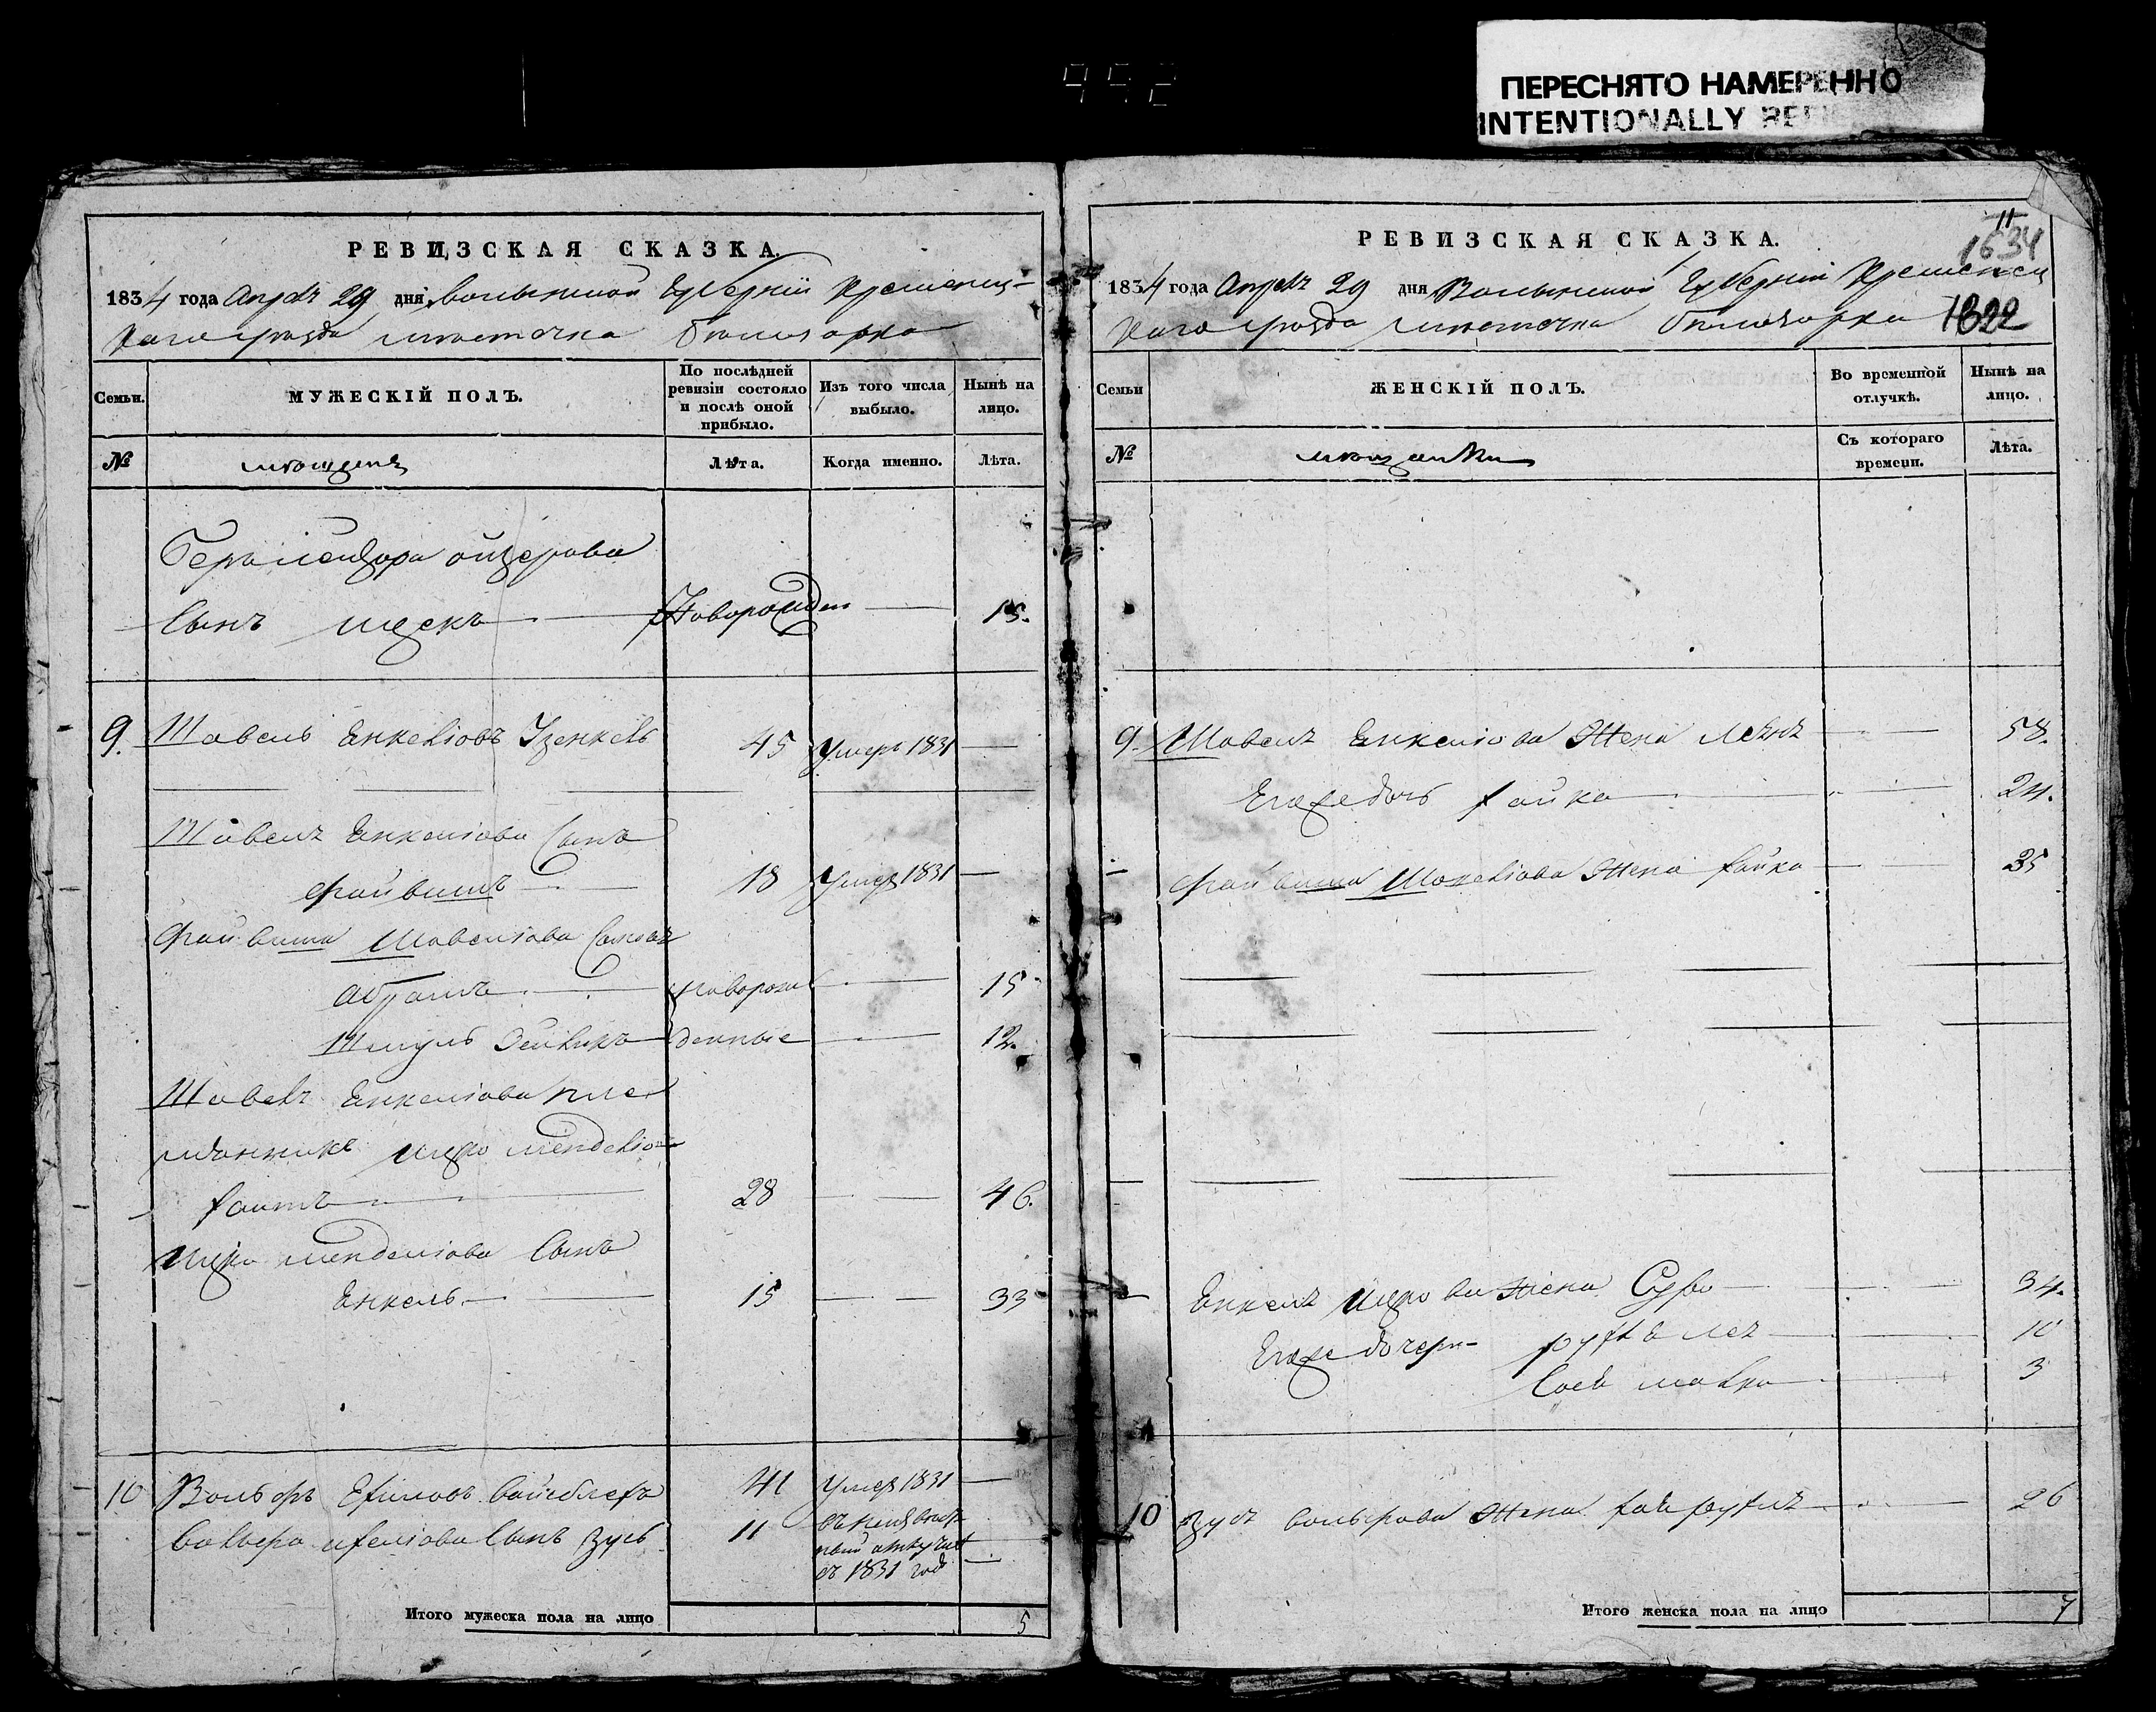 952
ПЕРЕСНЯТО НАМЕРЕННО
INTENTIONALLY
РЕВИЗСКАЯ СКАЗКА.
1834 года Апреля 29 дня Волынской Губерніи Кременец-
каго уезда местечка Белозорка
Семьи.
МУЖЕСКІЙ ПОЛЪ.
По послѣдней ревизіи состояло и послѣ оной прибыло.
Изъ того числа выбыло.
Нынѣ на лицо.
№
мещане
Лѣта.
Когда именно.
Лѣта.
Сынъ Ицекъ Новорожден 15.
9. Шавель Енкеліовъ 45 Умеръ 1831
Шавеля Енкеліова Сынъ
Файвишъ 18 Умер 1831
Файвиша Шавеліова Сыновья
Абрамъ новорож 15
Шмуль Зейликъ денные 12.
Шавеля Енкеліова пле
мянникъ Ицко Менделіо
28 46.
Ицка Менделіова Сынъ
Енкель 15 33
10 Вольфъ 41 Умер 1831
Сынъ Зусь 11
съ 1831 год
Итого мужеска пола на лицо 5
РЕВИЗСКАЯ СКАЗКА.
11
1634
1834 года Апреля 29 дня Волынской Губерніи Кременец
каго уезда местечка Белозорка 1822
Семьи
ЖЕНСКІЙ ПОЛЪ.
Во временной отлучкѣ.
Нынѣ на лицо.
№
мещанки
Съ котораго времени.
Лѣта.
9. Шавеля Енкеліова Жена 58.
Егоже дочь Хайка 24.
Файвиша Шавеліова Жена Хайка 35
Енкеля Ицкова Жена Сурa 34.
Егоже дочери 10
3
10 Зуся Вольфова Жена 26
Итого женска пола на лицо 7